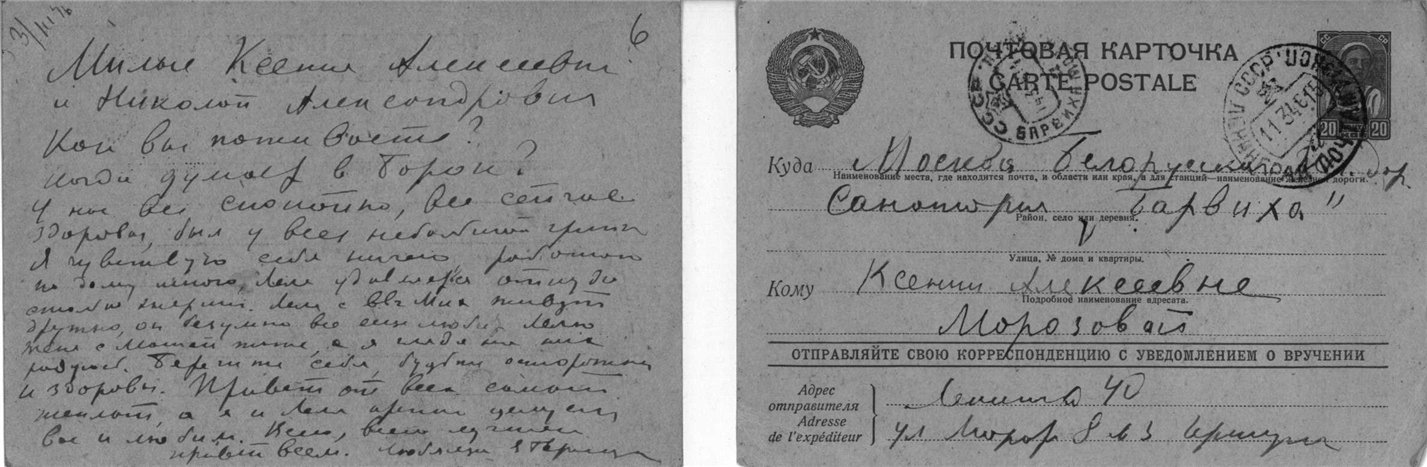 6
Милые Ксения Алексеевна
и Николай Александрович
Как вы поживаете?
Когда думаете в Борок?
У нас все спокойно, все сейчас
здоровы, был у всех небольшой грипп
Я чувствую себя ничего работаю
по дому много, Леля удивляется откуда
столько энергии. Леля с
дружно, он безумно всю семью любит. Лелю
меня с Машей тоже, а я глядя на них
радуюсь. Берегите себя, будьте осторожны
и здоровы. Привет от всех самый
теплый, а я и Леля крепко целуем
вас и любим. всего лучшего
привет всем. Любящая
ПОЧТОВАЯ КАРТОЧКА
CARTE POSTALE
20 20
Куда Москва Белорусская
Наименование места, где находится почта, и области или края, а для станций—наименование железной дороги.
Санатория „Барвиха"
Район, село или деревня.
Улица, № дома и квартиры.
Кому Ксении Алексеевне
Подробное наименование адресата.
Морозовой
ОТПРАВЛЯЙТЕ СВОЮ КОРРЕСПОНДЕНЦИЮ С УВЕДОМЛЕНИЕМ О ВРУЧЕНИИ
Адрес
отправителя
Adresse
de l'expéditeur
40
ул